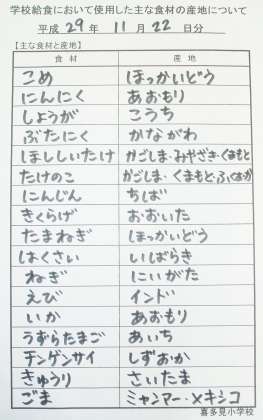 学校給食において使用した主な食材の産地について
平成 29 年 11 月 22 日分
【主な食材と産地】
食材 産地
こめ ほっかいどう
にんにく あおもり
しょうが こうち
ぶたにく かながわ
ほししいたけ かごしま・みやざき・くまもと
たけのこ かごしま・くまもと・ふくおか
にんじん ちば
きくらげ おおいた
たまねぎ ほっかいどう
はくさい いばらき
ねぎ にいがた
えび インド
いか あおもり
うずらたまご あいち
チンゲンサイ しずおか
きゅうり さいたま
ごま ミャンマー・メキシコ
喜多見小学校